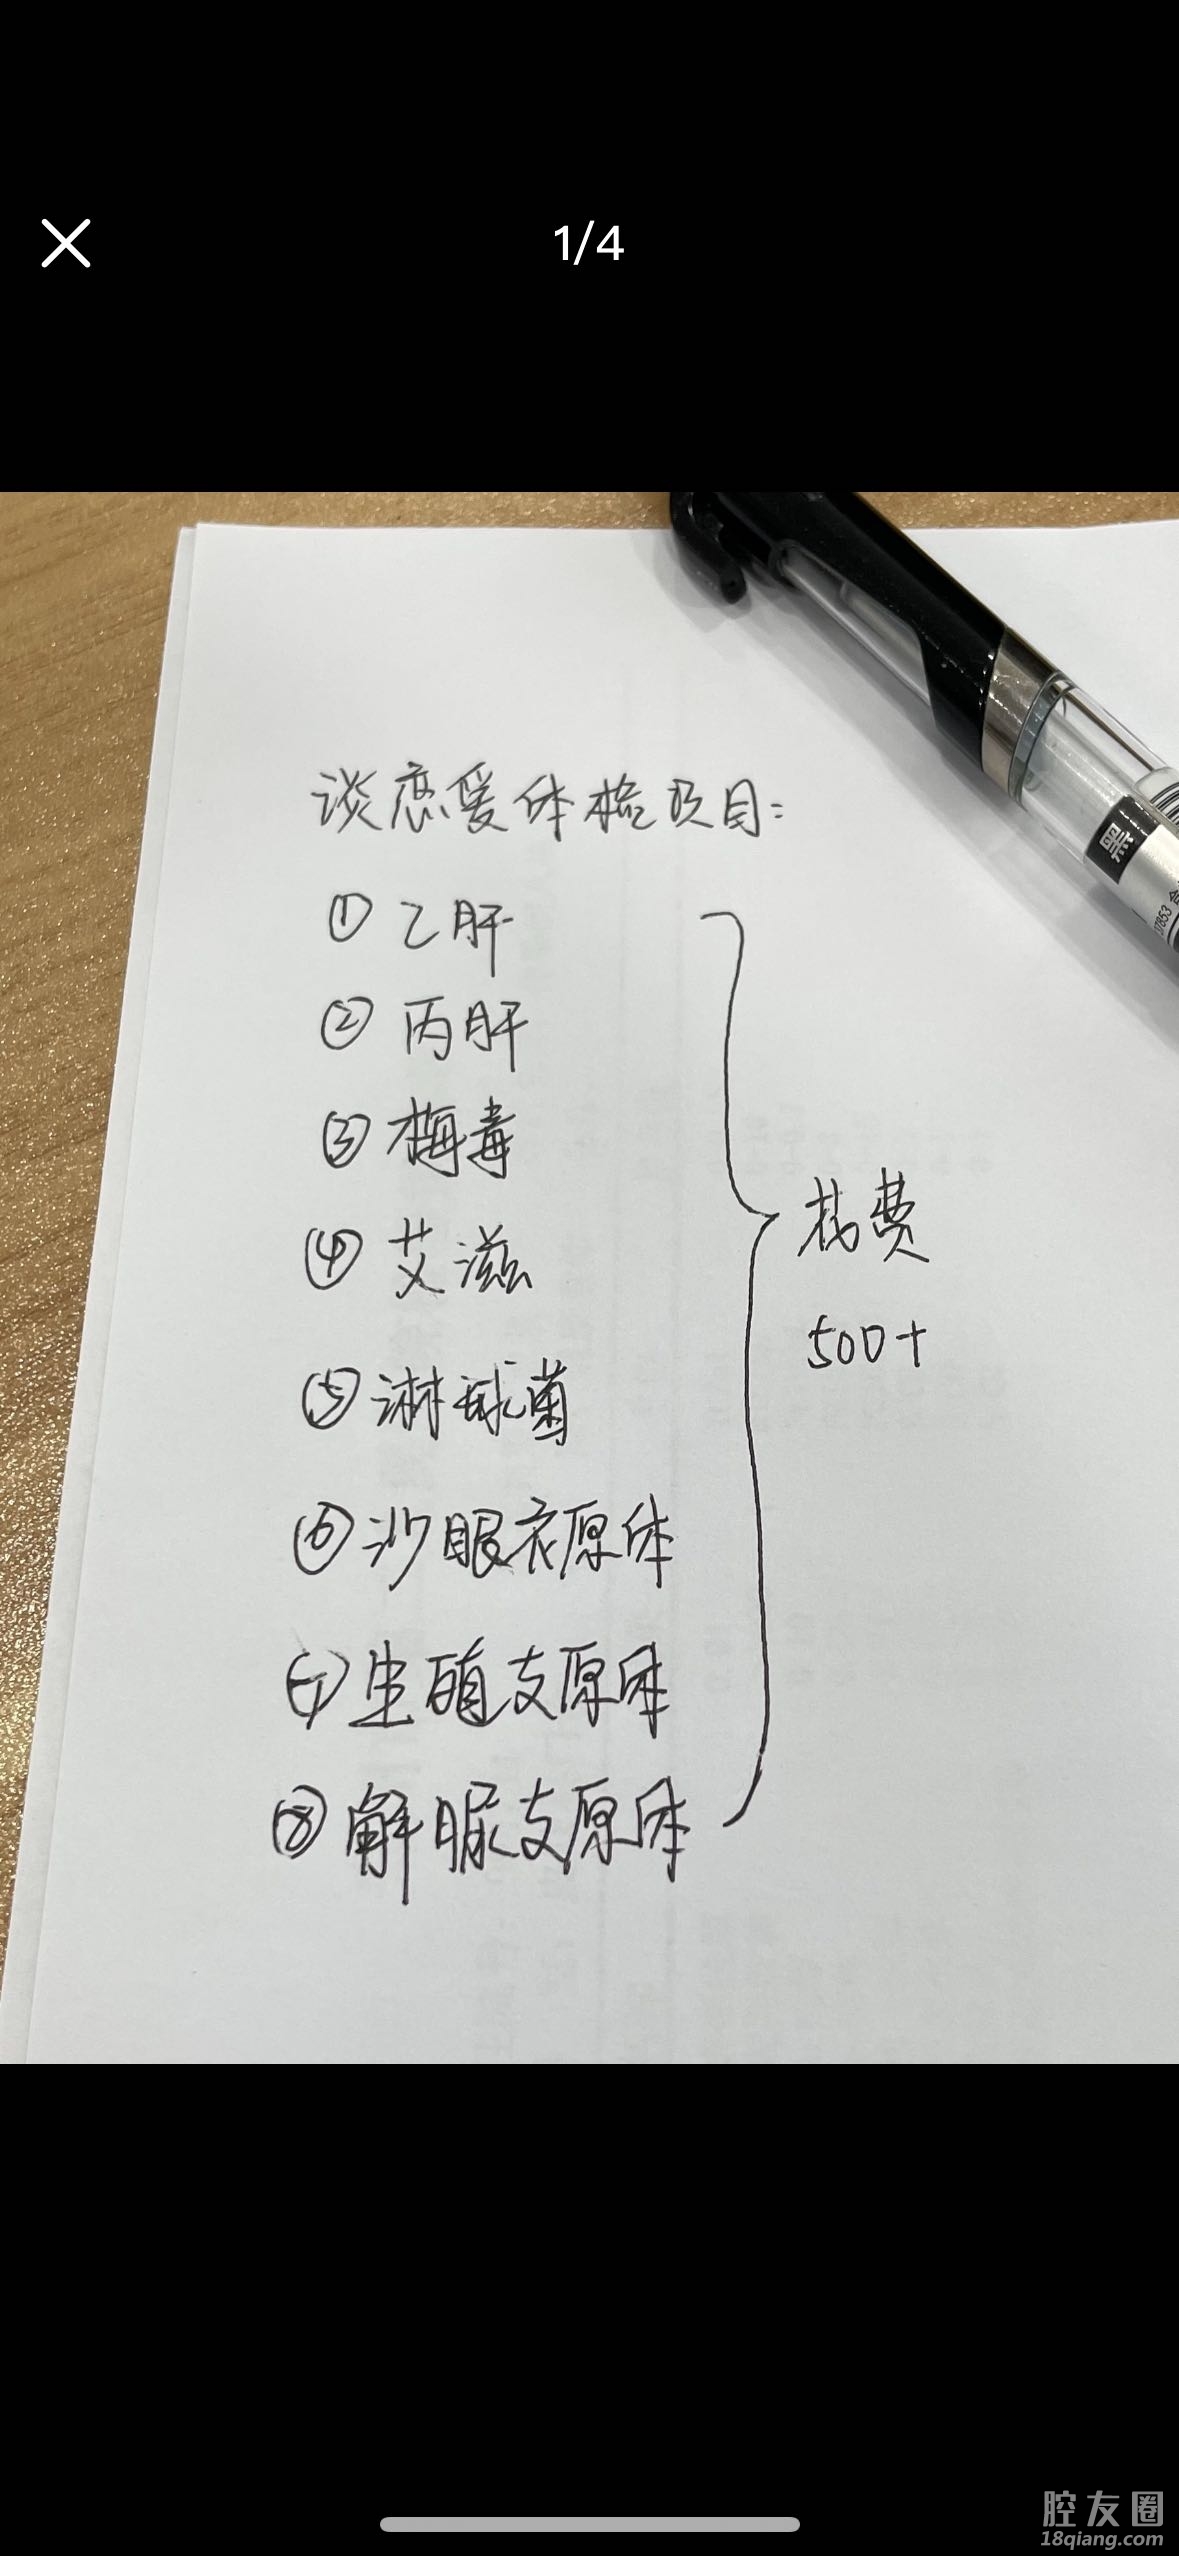 1/4
黑
37853
谈恋爱体检项目:
① 乙肝
② 丙肝
③ 梅毒
④ 艾滋
⑤ 淋球菌
⑥ 沙眼衣原体
⑦ 生殖支原体
⑧ 解脲支原体
花费
500+
腔友圈
18qiang.com